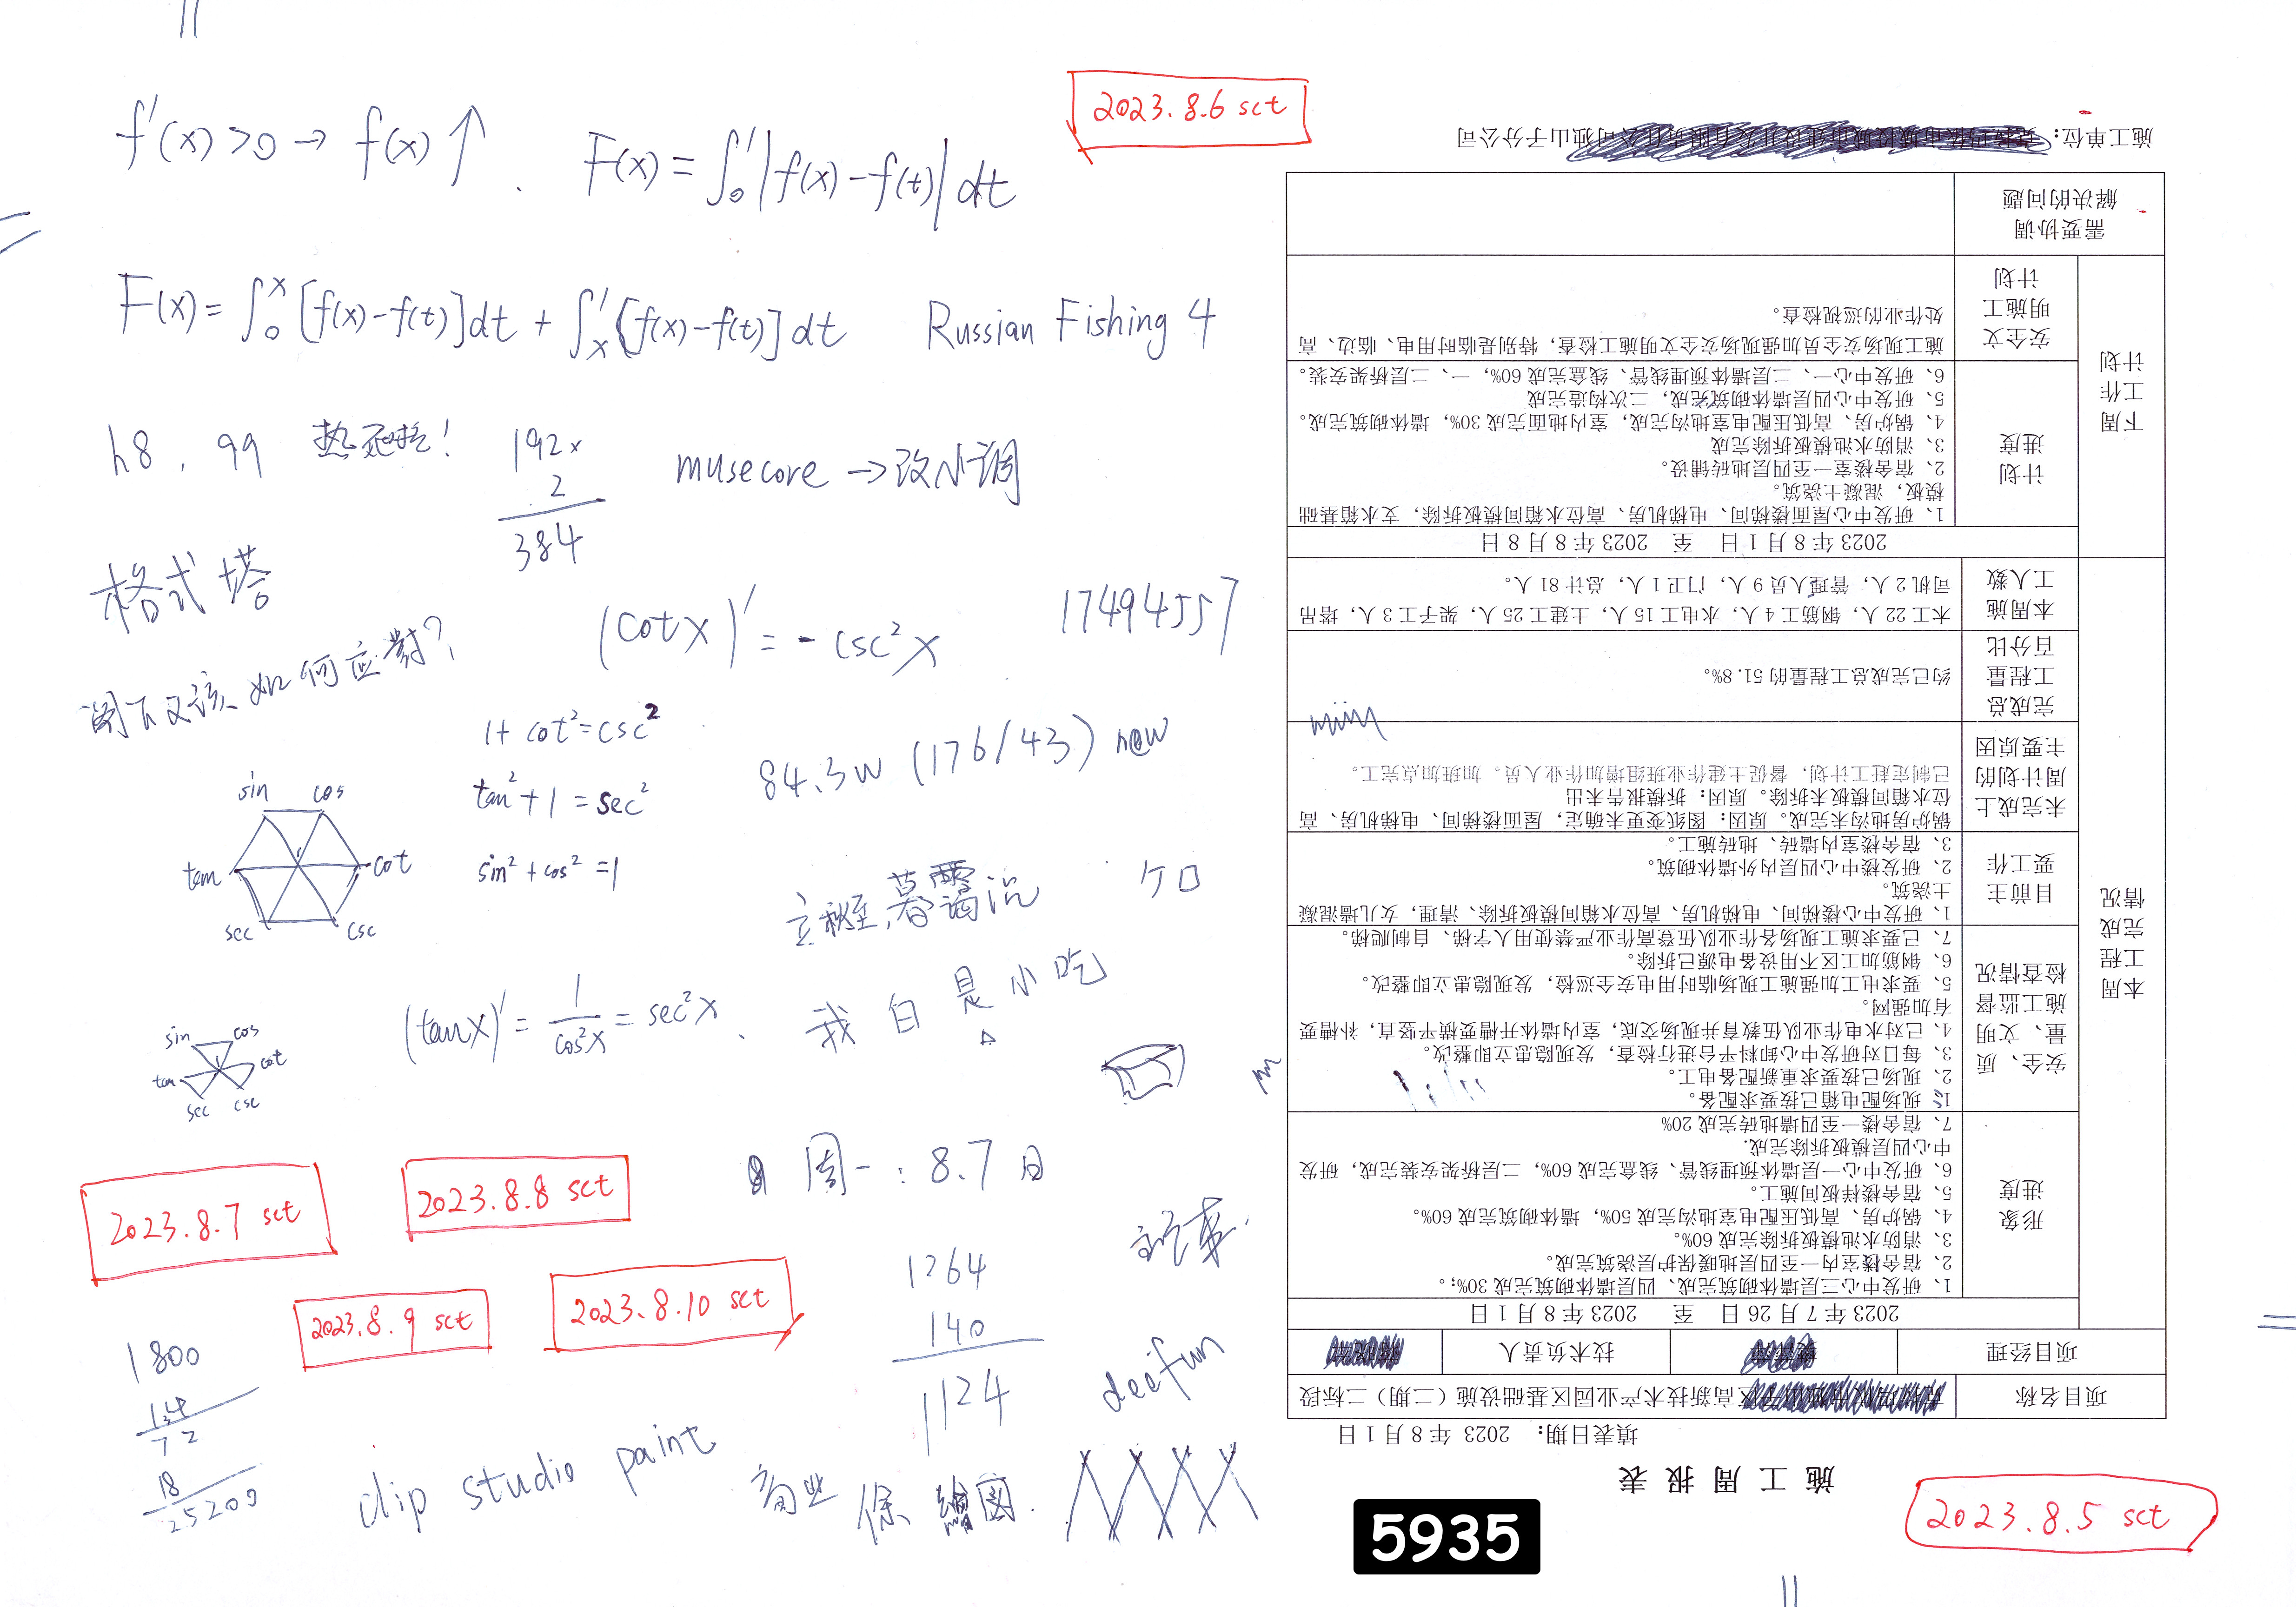 2023.8.6 sct
f'(x)>0→f(x)↑.
F(x)=∫₀¹|f(x)-f(t)|dt
F(x)=∫₀ˣ[f(x)-f(t)]dt+∫ₓ¹[f(x)-f(t)]dt
Russian Fishing 4
h8,99
192×
2
384
musecore→改小调
格式塔
阁下又该如何应對?
(cotx)'=-csc²x
17494557
1+cot²=csc²
tan²+1=sec²
sin²+cos²=1
84.3w(176/43) now
sin cos
tan cot
sec csc
立秋至,暮霭沉
ケロ
(tanx)'=1/cos²x=sec²x.
我白是小吃
sin cos
tan cot
sec csc
周一:8.7日
2023.8.7 sct
2023.8.8 sct
2023.8.9 sct
2023.8.10 sct
1264
140
1124
1800
14
72
18
25200
clip studio paint
商业
绘圖.
2023.8.5 sct
5935
施工周报表
填表日期: 2023年8月1日
项目名称
区高新技术产业园区基础设施(二期)二标段
项目经理
技术负责人
本周工程完成情况
2023年7月26日 至 2023年8月1日
形象进度
1、研发中心三层墙体砌筑完成、四层墙体砌筑完成30%;。
2、宿舍楼室内一至四层地暖保护层浇筑完成。
3、消防水池模板拆除完成60%。
4、锅炉房、高低压配电室地沟完成50%,墙体砌筑完成60%。
5、宿舍楼样板间施工。
6、研发中心一层墙体预埋线管、线盒完成60%,二层桥架安装完成,研发
中心四层模板拆除完成.
7、宿舍楼一至四墙地砖完成20%
安全、质量、文明施工监督检查情况
1、现场配电箱已按要求配备。
2、现场已按要求重新配备电工。
3、每日对研发中心卸料平台进行检查,发现隐患立即整改。
4、已对水电作业队伍教育并现场交底,室内墙体开槽要横平竖直,补槽要
有加强网。
5、要求电工加强施工现场临时用电安全巡检,发现隐患立即整改。
6、钢筋加工区不用设备电源已拆除。
7、已要求施工现场各作业队伍登高作业严禁使用人字梯、自制爬梯。
目前主要工作
1、研发中心楼梯间、电梯机房、高位水箱间模板拆除、清理,女儿墙混凝
土浇筑。
2、研发楼中心四层内外墙体砌筑。
3、宿舍楼室内墙砖、地砖施工。
未完成上周计划的主要原因
锅炉房地沟未完成。原因:图纸变更未确定,屋面楼梯间、电梯机房、高
位水箱间模板未拆除。原因:拆模报告未出
已制定赶工计划,督促土建作业班组增加作业人员。加班加点完工。
完成总工程量百分比
约已完成总工程量的51.8%。
本周施工人数
木工22人,钢筋工4人,水电工15人,土建工25人,架子工3人,塔吊
司机2人,管理人员9人,门卫1人,总计81人。
下周工作计划
2023年8月1日 至 2023年8月8日
计划进度
1、研发中心屋面楼梯间、电梯机房、高位水箱间模板拆除,支水箱基础
模板,混凝土浇筑。
2、宿舍楼室一至四层地砖铺设。
3、消防水池模板拆除完成
4、锅炉房、高低压配电室地沟完成,室内地面完成30%,墙体砌筑完成。
5、研发中心四层墙体砌筑完成,二次构造完成
6、研发中心一、二层墙体预埋线管、线盒完成60%,一、二层桥架安装。
安全文明施工计划
施工现场安全员加强现场安全文明施工检查,特别是临时用电、临边、高
处作业的巡视检查。
需要协调解决的问题
施工单位:
司独山子分公司